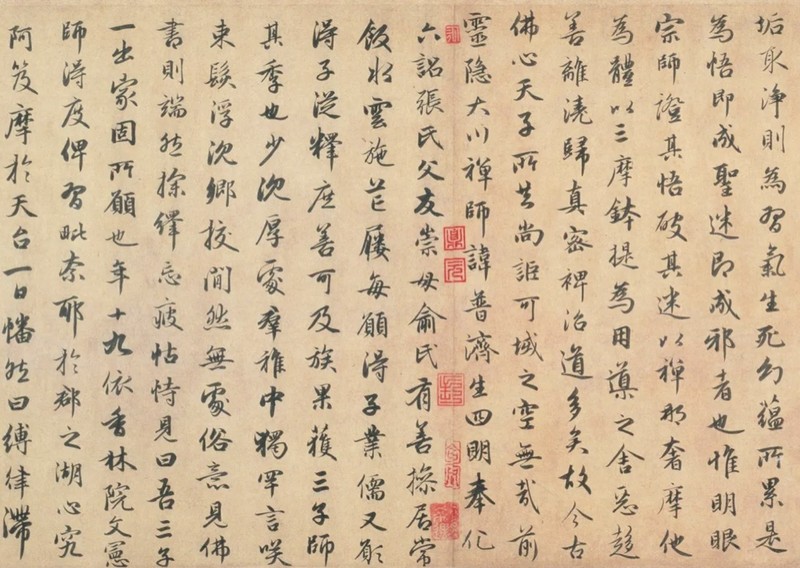 垢取净則為習氣生死幻蕴所累是
為悟即成聖迷即成邪者也惟明眼
宗師證其悟破其迷以禅那奢摩他
為體以三摩鉢提為用導之舍惡趨
善離澆歸真密裨治道多矣故今古
佛心天子所共尚詎可域之空無哉前
靈隐大川禅師諱普濟生四明奉化
六詔張氏父友崇母俞氏有善操居常
飯水雲施芒屨每願得子業儒又願
得子從釋庶善可及族果獲三子師
其季也少沈厚處羣稚中獨罕言咲
束髮浮沈鄉校闃然無處俗意見佛
書則端然探繹忘疲怙恃見曰吾三子
一出家固所願也年十九依香林院文憲
師得度俾習毗奈耶於郡之湖心究
阿笈摩於天台一日幡然曰縛律滯